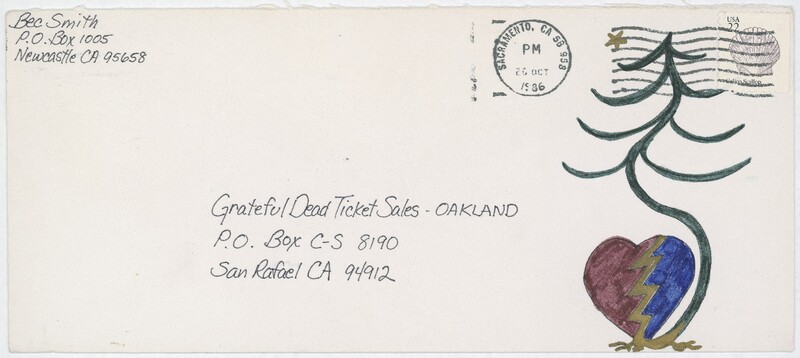 Bec Smith
P.O. Box 1005
Newcastle CA 95658
SACRAMENTO, CA 958
PM
26 OCT
1986
USA
22
Calico Scallop
Grateful Dead Ticket Sales - OAKLAND
P.O. Box C-S 8190
San Rafael CA 94912